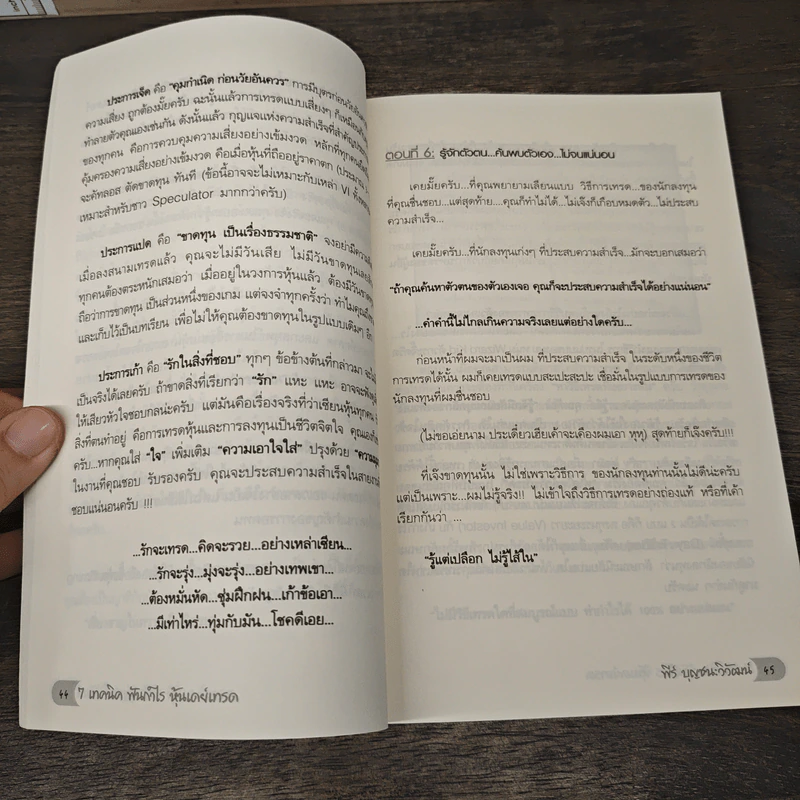 ประการเจ็ด คือ "คุมกำเนิด ก่อนวัยอันควร" การมีบุตรก่อนวัย
ความเสี่ยง ถูกต้องมั้ยครับ ฉะนั้นแล้วการเทรดแบบเสี่ยงๆ ก็เหมือน
ทำลายตัวคุณเองเช่นกัน ดังนั้นแล้ว กุญแจแห่งความสำเร็จที่สำคัญ
ของทุกคน คือการควบคุมความเสี่ยงอย่างเข้มงวด หลักที่ทุกคน
คุ้มครองความเสี่ยงอย่างเข้มงวด คือเมื่อหุ้นที่ถืออยู่ราคาตก (ประมาณ
จะคัทลอส ตัดขาดทุน ทันที (ข้อนี้อาจจะไม่เหมาะกับเหล่า VI
เหมาะสำหรับชาว Speculator มากกว่าครับ)
ประการแปด คือ "ขาดทุน เป็นเรื่องธรรมชาติ" จงอย่ามี
เมื่อลงสนามเทรดแล้ว คุณจะไม่มีวันเสีย ไม่มีวันขาดทุน
ทุกคนต้องตระหนักเสมอว่า เมื่ออยู่ในวงการหุ้นแล้ว ต้องมีวัน
ถือว่าการขาดทุน เป็นส่วนหนึ่งของเกม แต่จงจำทุกครั้งว่า ทำไมคุณถึง
และเก็บไว้เป็นบทเรียน เพื่อไม่ให้คุณต้องขาดทุนในรูปแบบเดิมๆ อีก
ประการเก้า คือ "รักในสิ่งที่ชอบ" ทุกๆ ข้อข้างต้นที่กล่าวมา จะไม่
เป็นจริงได้เลยครับ ถ้าขาดสิ่งที่เรียกว่า "รัก" แหะ แหะ อาจจะ
ให้เสียวหัวใจชอบกลนะครับ แต่มันคือเรื่องจริงที่ว่าเซียนหุ้นทุกคน
สิ่งที่ตนทำอยู่ คือการเทรดหุ้นและการลงทุนเป็นชีวิตจิตใจ คุณเอง
ครับ...หากคุณใส่ "ใจ" เพิ่มเติม "ความเอาใจใส่" ปรุงด้วย
ในงานที่คุณชอบ รับรองครับ คุณจะประสบความสำเร็จในสายงานที่
ชอบแน่นอนครับ !!!
...รักจะเทรด...คิดจะรวย...อย่างเหล่าเซียน...
...รักจะรุ่ง...มุ่งจะรุ่ง...อย่างเทพเขา...
...ต้องหมั่นหัด...ซุ่มฝึกฝน...เก้าข้อเอา...
...มีเท่าไหร่...ทุ่มกับมัน...โชคดีเอย...
44 7 เทคนิค ฟันกำไร หุ้นเดย์เทรด
ตอนที่ 6: รู้จักตัวตน...ค้นพบตัวเอง...ไม่จนแน่นอน
เคยมั้ยครับ...ที่คุณพยายามเลียนแบบ วิธีการเทรด...ของนักลงทุน
ที่คุณชื่นชอบ...แต่สุดท้าย....คุณก็ทำไม่ได้...ไม่เจ๊งก็เกือบหมดตัว...ไม่ประสบ
ความสำเร็จ...
เคยมั้ยครับ...ที่นักลงทุนเก่งๆ ที่ประสบความสำเร็จ...มักจะบอกเสมอว่า
"ถ้าคุณค้นหาตัวตนของตัวเองเจอ คุณก็จะประสบความสำเร็จได้อย่างแน่นอน"
...คำคำนี้ไม่ไกลเกินความจริงเลยแต่อย่างใดครับ...
ก่อนหน้าที่ผมจะมาเป็นผม ที่ประสบความสำเร็จ ในระดับหนึ่งของชีวิต
การเทรดได้นั้น ผมก็เคยเทรดแบบสะเปะสะปะ เชื่อมั่นในรูปแบบการเทรดของ
นักลงทุนที่ผมชื่นชอบ
(ไม่ขอเอ่ยนาม ประเดี๋ยวเฮียเค้าจะเคืองผมเอา หุหุ) สุดท้ายก็เจ๊งครับ!!!
ที่เจ๊งขาดทุนนั้น ไม่ใช่เพราะวิธีการ ของนักลงทุนท่านนั้นไม่ดีนะครับ
แต่เป็นเพราะ...ผมไม่รู้จริง!! ไม่เข้าใจถึงวิธีการเทรดอย่างถ่องแท้ หรือที่เค้า
เรียกกันว่า ...
"รู้แต่เปลือก ไม่รู้ไส้ใน"
พีร์ บุญชนะวิวัฒน์ 45